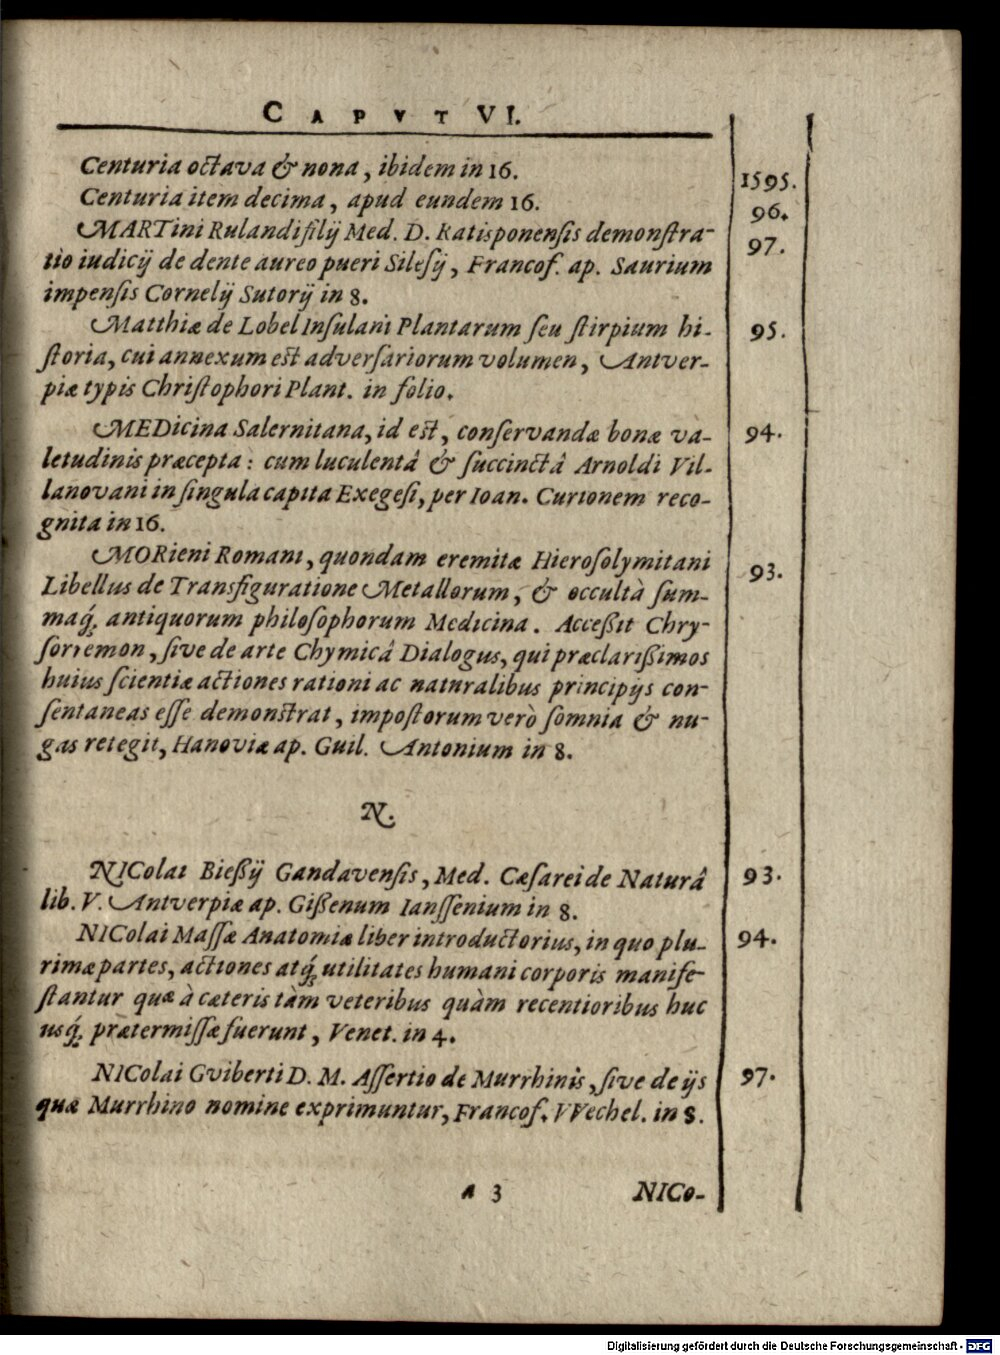 CAPVT VI.
Centuria octava & nona, ibidem in 16. 1595.
Centuria item decima, apud eundem 16. 96.
MARTini Rulandi filij Med. D. Ratisponensis demonſtra- 97.
tio iudicij de dente aureo pueri Sileſij, Francof. ap. Saurium
impenſis Cornelij Sutorij in 8.
Matthiæ de Lobel Inſulani Plantarum ſeu ſtirpium hi- 95.
ſtoria, cui annexum est adverſariorum volumen, Antver-
piæ typis Chriſtophori Plant. in folio.
MEDicina Salernitana, id est, conſervandæ bonæ va- 94.
letudinis præcepta: cum luculentâ & ſuccinctâ Arnoldi Vil-
lanovani in ſingula capita Exegeſi, per Ioan. Curionem reco-
gnita in 16.
MORieni Romani, quondam eremitæ Hieroſolymitani 93.
Libellus de Transfiguratione Metallorum, & occultà ſum-
maq́; antiquorum philoſophorum Medicina. Acceßit Chry-
ſorremon, ſive de arte Chymicâ Dialogus, qui præclarißimos
huius ſcientiæ actiones rationi ac naturalibus principijs con-
ſentaneas eſſe demonſtrat, impoſtorum verò ſomnia & nu-
gas retegit, Hanoviæ ap. Guil. Antonium in 8.
N.
NIColai Bießij Gandavenſis, Med. Cæſarei de Naturâ 93.
lib. V. Antverpiæ ap. Gißenum Ianſſenium in 8.
NIColai Maſſæ Anatomiæ liber introductorius, in quo plu- 94.
rimæ partes, actiones atq́; utilitates humani corporis manife-
ſtantur quæ à cæteris tàm veteribus quàm recentioribus huc
usq́; prætermiſſæ fuerunt, Venet. in 4.
NIColai Gviberti D. M. Aſſertio de Murrhinis, ſive de ijs 97.
quæ Murrhino nomine exprimuntur, Francof. VVechel. in 8.
a 3 NICo-
Digitalisierung gefördert durch die Deutsche Forschungsgemeinschaft - DFG